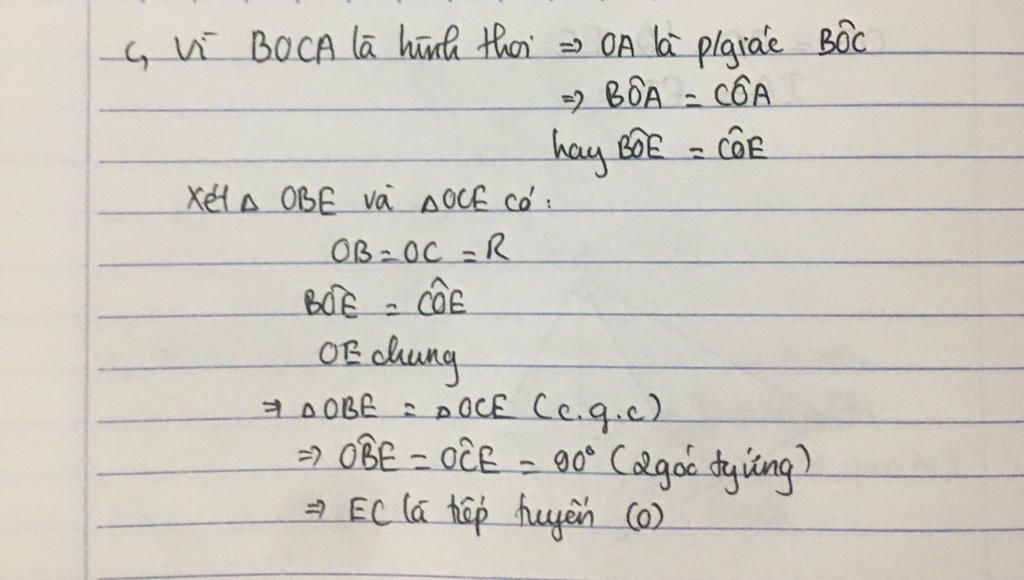 c, Vì BOCA là hình thoi ⇒ OA là p/giác BÔC
⇒ BÔA = CÔA
hay BÔE = CÔE
Xét Δ OBE và ΔOCE có:
OB = OC = R
BÔE = CÔE
OE chung
⇒ ΔOBE = ΔOCE (c.g.c)
⇒ OB̂E = OĈE = 90° (2góc tyứng)
⇒ EC là tiếp tuyến (O)